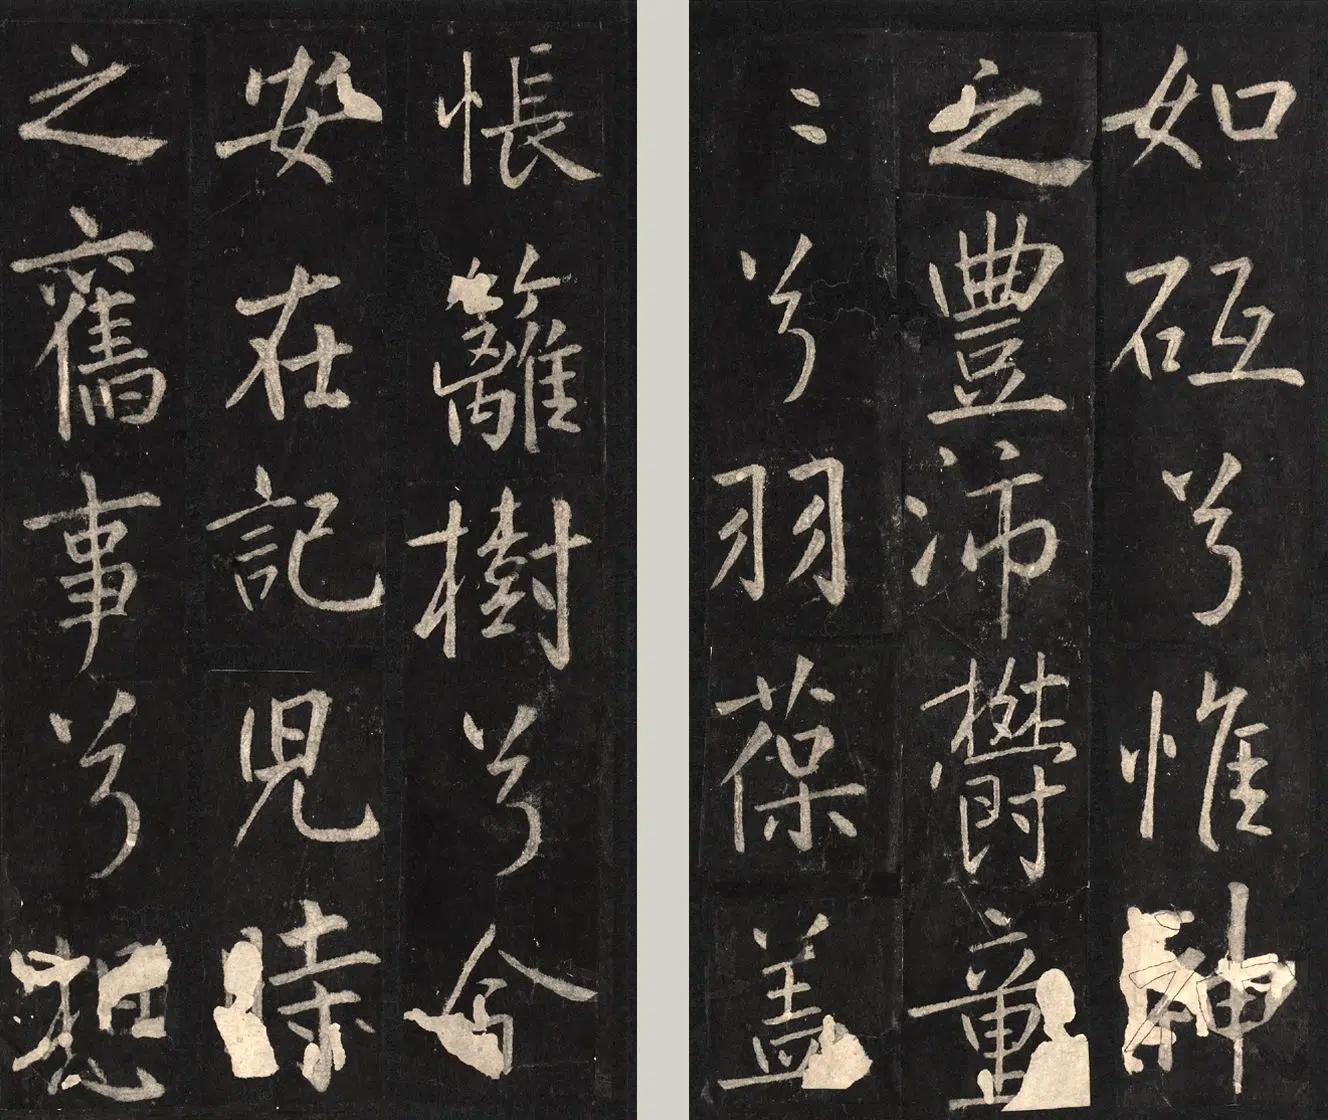 如砥兮惟神
之豐沛鬱童
〻兮羽葆盖
悵籬樹兮今
安在記児時
之舊事兮想